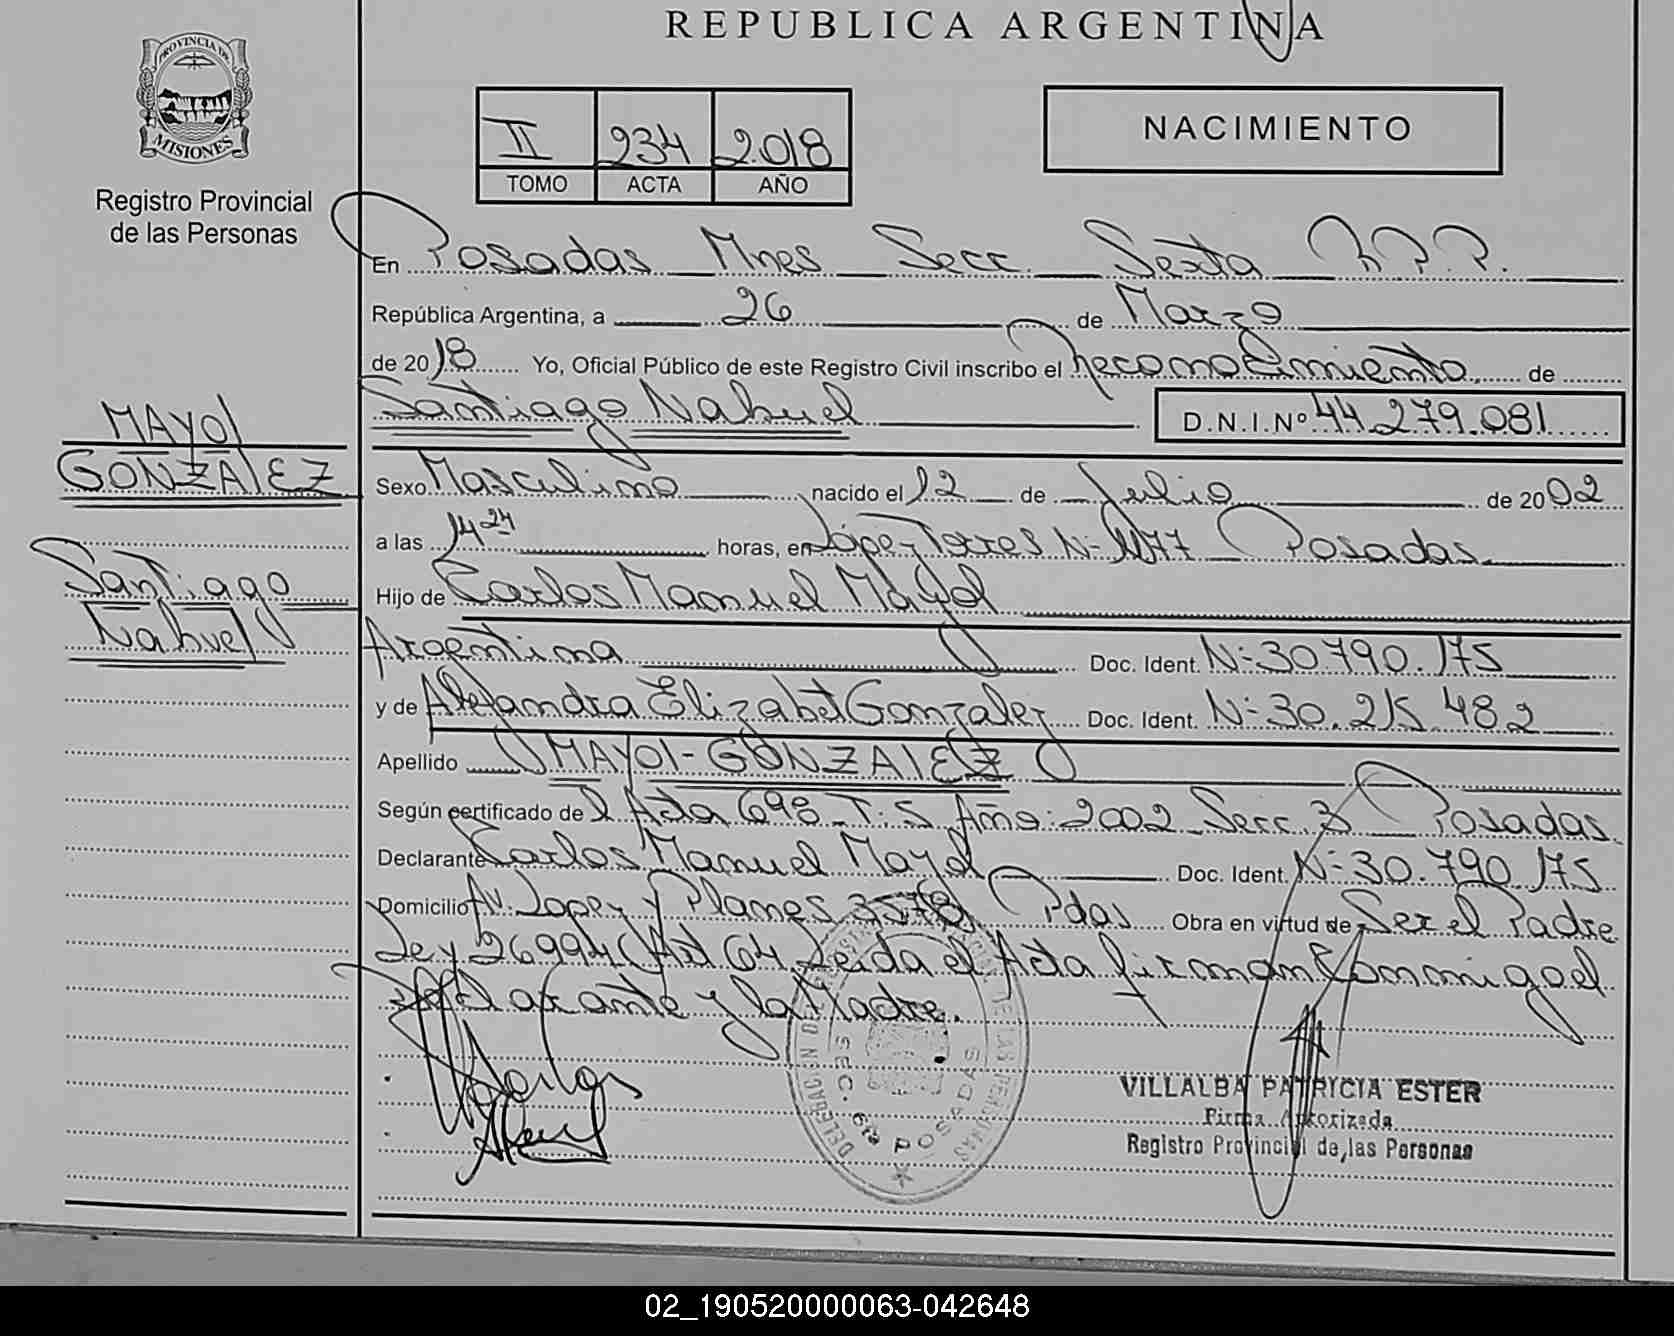 REPUBLICA ARGENTINA
PROVINCIA DE
MISIONES
Registro Provincial
de las Personas
II 234 2.018
TOMO ACTA AÑO
NACIMIENTO
En Posadas Mnes Secc. Sexta R.P.P.
República Argentina, a 26 de Marzo
de 2018 Yo, Oficial Público de este Registro Civil inscribo el Reconocimiento de
Santiago Nahuel D.N.I.Nº 44.279.081
MAYOl
GONZAlEZ
Santiago
Nahuel
Sexo Masculino nacido el 12 de Julio de 2002
a las 14 24 horas, en López Torres Nº 1177 Posadas
Hijo de Carlos Manuel Mayol
Argentina Doc. Ident. Nº 30.790.175
y de Alejandra Elizabet Gonzalez Doc. Ident. Nº 30.215.482
Apellido MAYOl-GONZAlEZ
Según certificado de l Acta 698 T: 5 Año: 2002 Secc. 3 Posadas
Declarante Carlos Manuel Mayol Doc. Ident. Nº 30.790.175
Domicilio Av. Lopez y Planes 3578 Pdas Obra en virtud de Ser el Padre
Ley 26994 Art 64 Leida el Acta firman Conmigo el
Declarante y la Madre.
Carlos
DELEGACION
DE LAS PERSONAS
SEC. 6ta POSADAS
VILLALBA PATRICIA ESTER
Firma Autorizada
Registro Provincial de las Personas
02_190520000063-042648